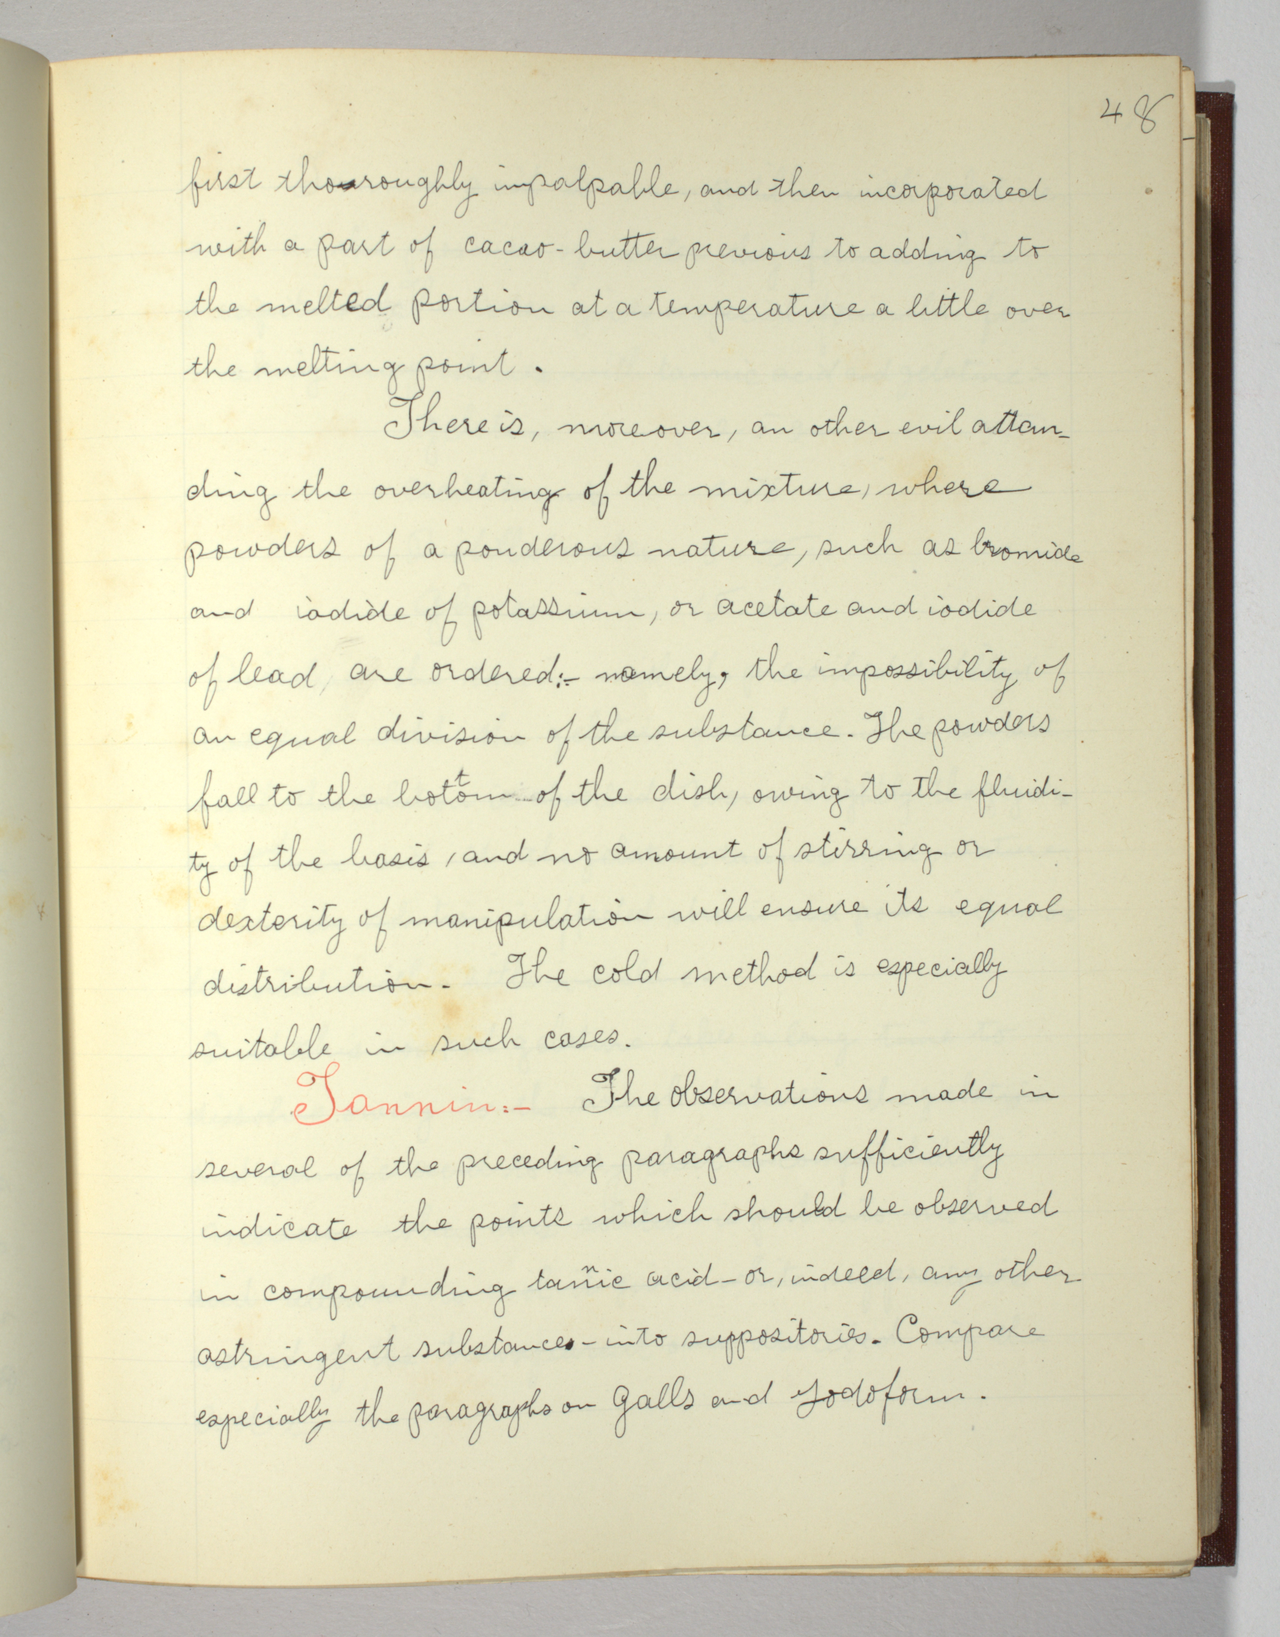 48
first thoroughly impalpable, and then incorporated
with a part of cacao-butter previous to adding to
the melted portion at a temperature a little over
the melting point.
There is, moreover, an other evil attan-
ding the overheating of the mixture, where
powders of a ponderous nature, such as bromide
and iodide of potassium, or acetate and iodide
of lead, are ordered:- namely, the impossibility of
an equal division of the substance. The powders
fall to the bottom of the dish, owing to the fluidi-
ty of the basis, and no amount of stirring or
dexterity of manipulation will ensure its equal
distribution. The cold method is especially
suitable in such cases.
Tannin:- The observations made in
several of the preceding paragraphs sufficiently
indicate the points which should be observed
in compounding tannic acid - or, indeed, any other
astringent substance - into suppositories. Compare
especially the paragraphs on Galls and Yodoform.